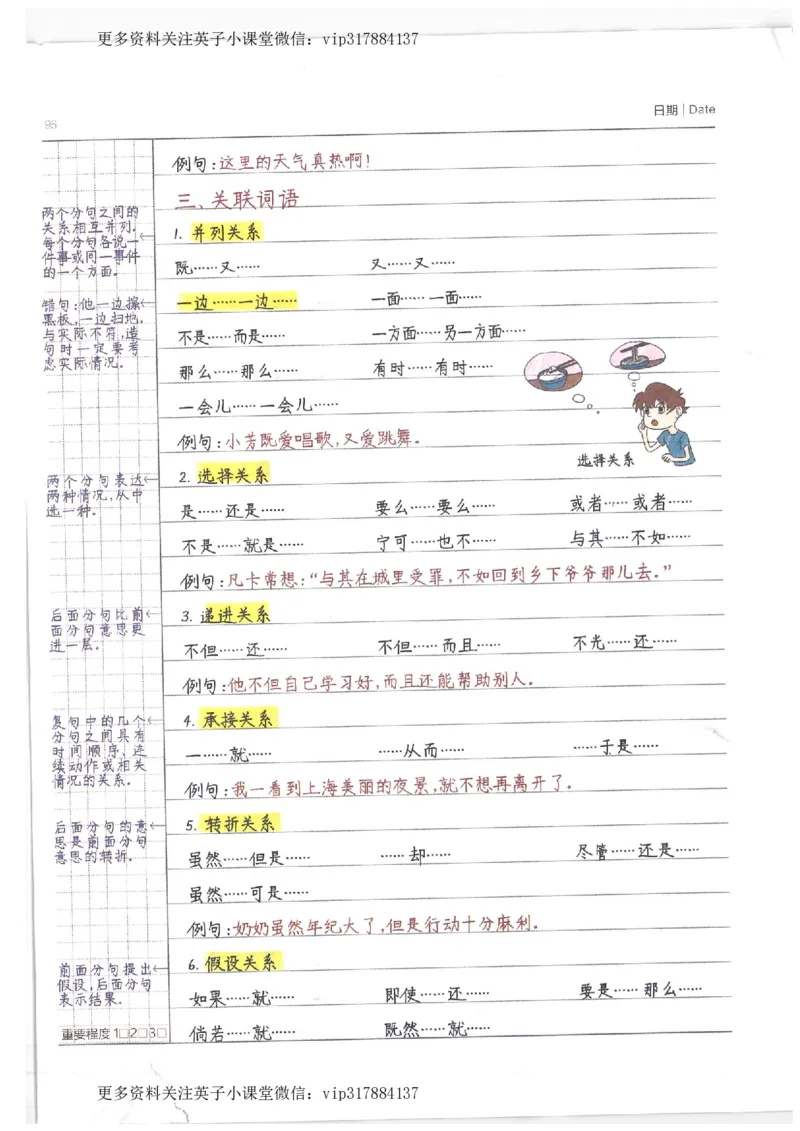 更多资料关注英子小课堂微信：vip317884137
96
日期 | Date
例句:这里的天气真热啊!
三、关联词语
两个分句之间的
关系相互并列。
每个分句各说一
件事或同一事件
的一个方面。
1. 并列关系
既……又……
又……又……
一边……一边……
一面……一面……
错句:他一边擦
黑板,一边扫地。
与实际不符,造
句时一定要考
虑实际情况。
不是……而是……
一方面……另一方面……
那么……那么……
有时……有时……
一会儿……一会儿……
例句:小芳既爱唱歌,又爱跳舞。
选择关系
两个分句表达
两种情况,从中
选一种。
2. 选择关系
是……还是……
要么……要么……
或者……或者……
不是……就是……
宁可……也不……
与其……不如……
例句:凡卡常想:“与其在城里受罪,不如回到乡下爷爷那儿去。”
后面分句比前
面分句意思更
进一层。
3. 递进关系
不但……还……
不但……而且……
不光……还……
例句:他不但自己学习好,而且还能帮助别人。
复句中的几个
分句之间具有
时间顺序、连
续动作或相关
情况的关系。
4. 承接关系
一……就……
……从而……
……于是……
例句:我一看到上海美丽的夜景,就不想再离开了。
后面分句的意
思是前面分句
意思的转折。
5. 转折关系
虽然……但是……
……却……
尽管……还是……
虽然……可是……
例句:奶奶虽然年纪大了,但是行动十分麻利。
前面分句提出
假设,后面分句
表示结果。
6. 假设关系
如果……就……
即使……还……
要是……那么……
倘若……就……
既然……就……
重要程度 1□2□3□
更多资料关注英子小课堂微信：vip317884137